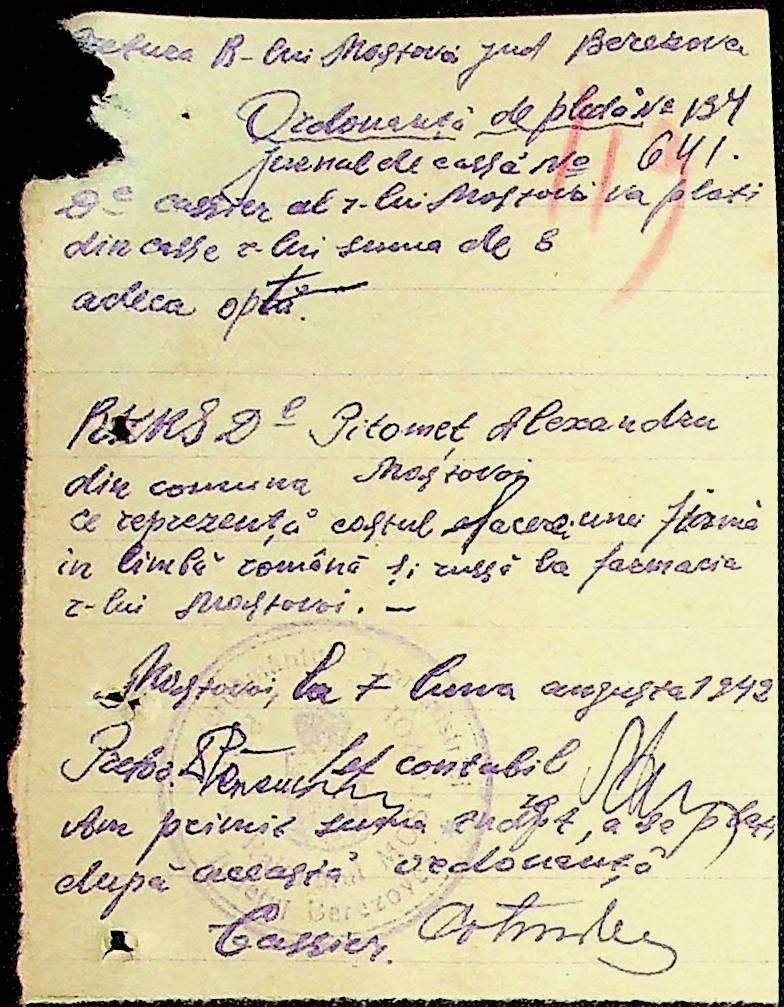 R-lui Mostovoi jud Berezova
Ordonanță de plată № 134
Jurnal de cassă № 641.
113
Dl cassier al r-lui Mostovoi va plati
din casse r-lui suma de 8
adeca optă.
RKKS Dl Pitomeț Alexandru
din comuna Mostovoi
ce reprezență costul afacerei unei firmă
in limbă română și russă la farmacia
r-lui Mostovoi. —
Mostovoi, la 7 luna augusta 1942
Pretor Șef contabil
Am primit suma a se plati
după această ordonanță
Cassier.
Berezovca